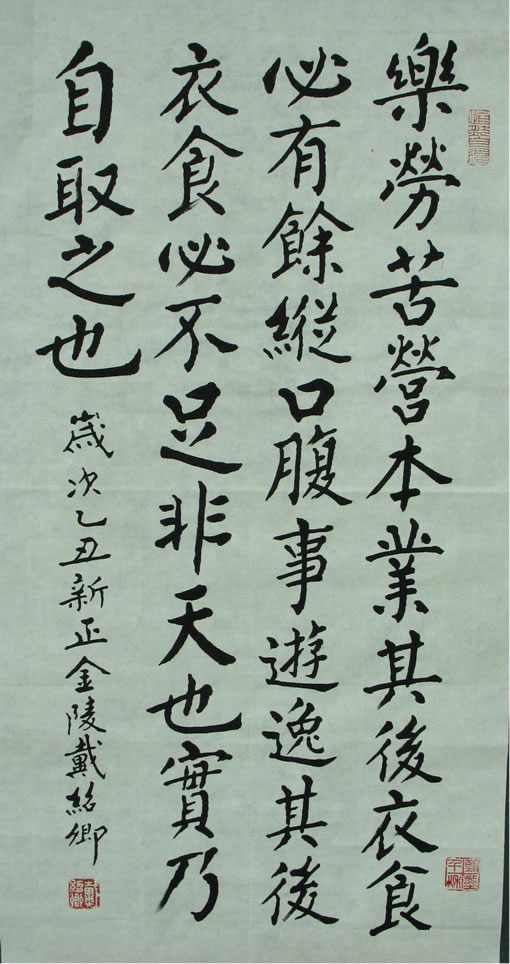 樂勞苦營本業其後衣食
必有餘縱口腹事遊逸其後
衣食必不足非天也實乃
自取之也
歲次乙丑新正金陵戴紹卿